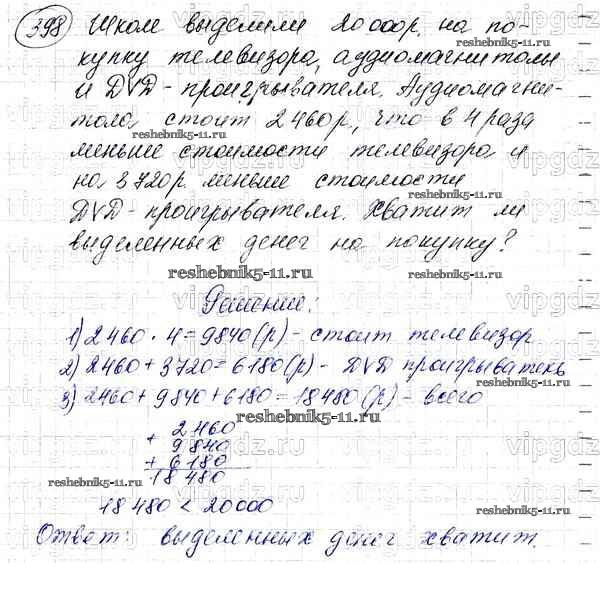 398 Школе выделили 20000р. на по-
купку телевизора, аудиомагнитолы
и DVD-проигрывателя. Аудиомагни-
тола стоит 2460р, что в 4 раза
меньше стоимости телевизора и
на 3720р. меньше стоимости
DVD-проигрывателя. Хватит ли
выделенных денег на покупку?
Решение:
1) 2460 · 4 = 9840(р) - стоит телевизор
2) 2460 + 3720 = 6180(р) - DVD проигрыватель
3) 2460 + 9840 + 6180 = 18480(р) - всего
2460
+ 9840
+ 6180
18 480
18 480 < 20000
Ответ: выделенных денег хватит.
reshebnik5-11.ru
reshebnik5-11.ru
reshebnik5-11.ru
reshebnik5-11.ru
reshebnik5-11.ru
reshebnik5-11.ru
reshebnik5-11.ru
vipgdz.ru